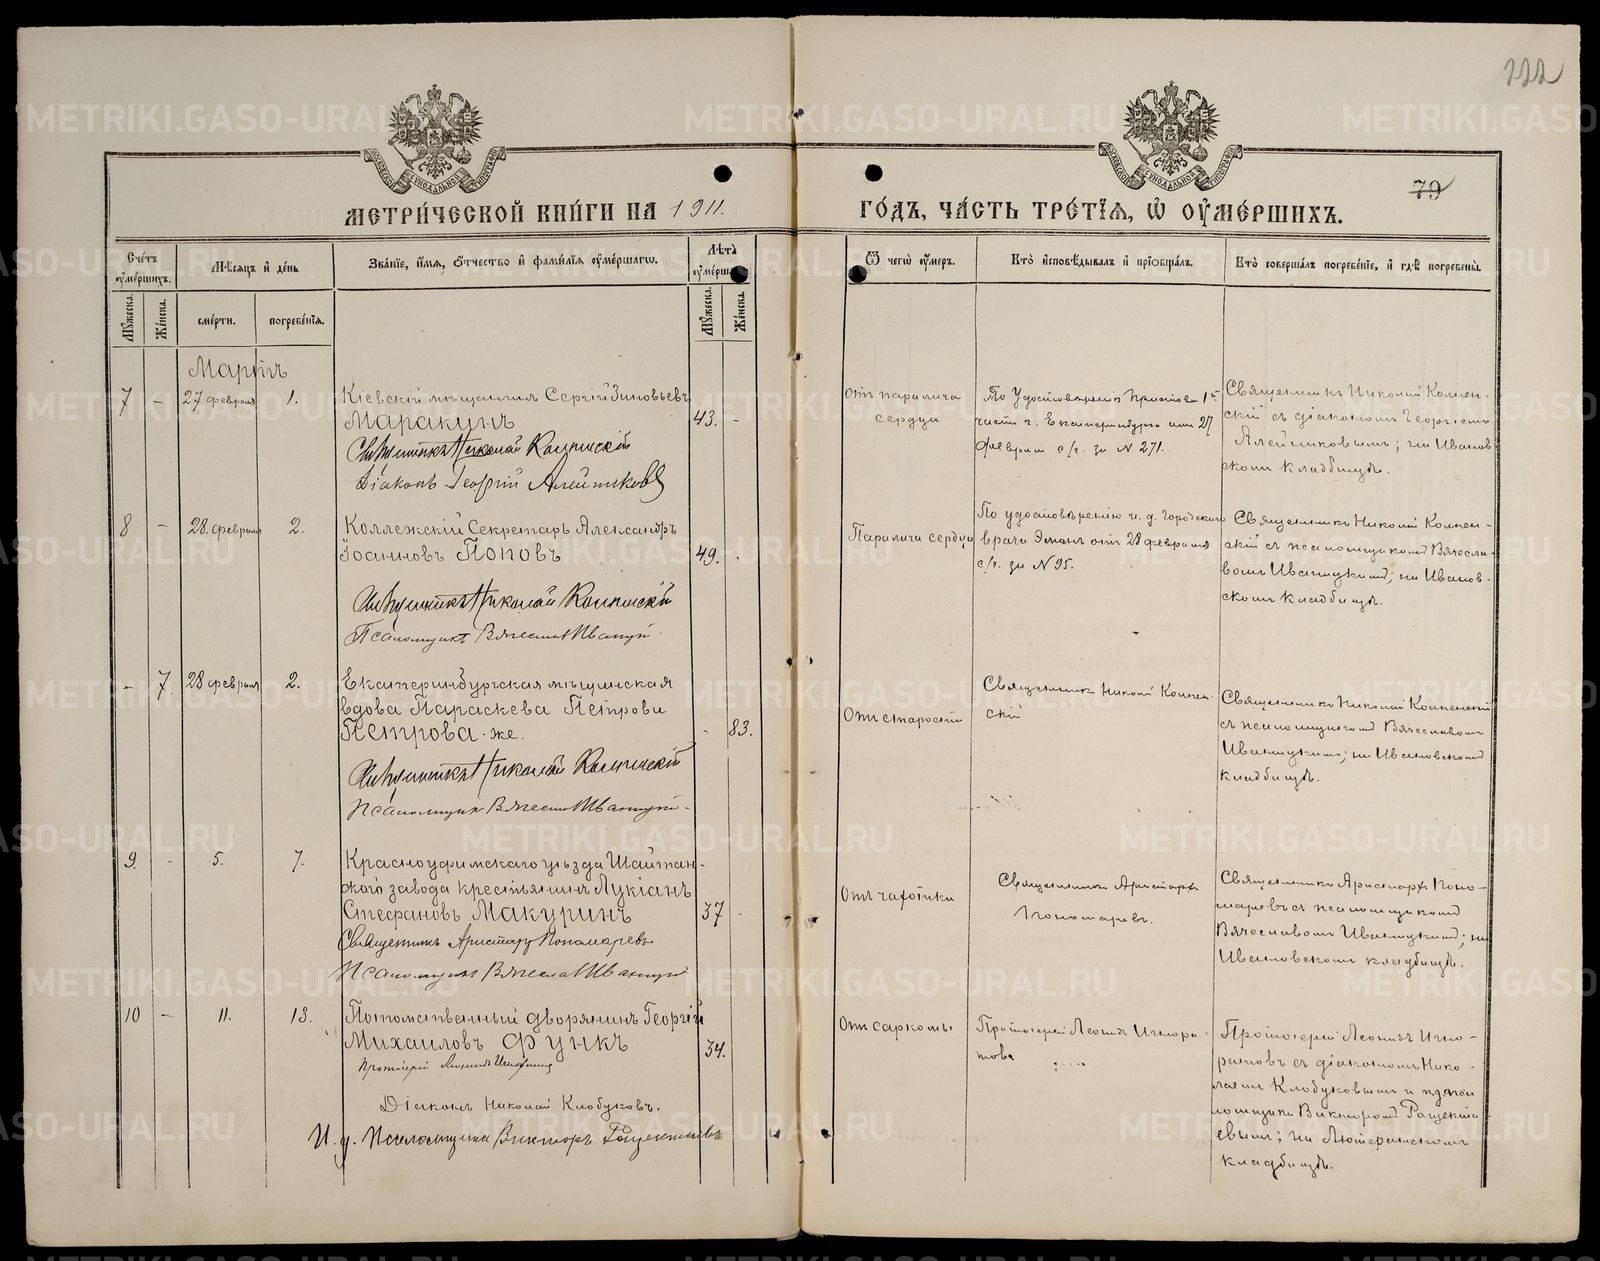 222
79
МЕТРИ́ЧЕСКОЙ КНИ́ГИ НА 1911.
ГО́ДЪ, ЧА́СТЬ ТРЕ́ТІѦ, Ѡ ОУ҆МЕ́РШИХЪ.
Сче́тъ оу҆ме́ршихъ.
Мѣ́сяцъ и҆ де́нь
Зва́ніе, и҆́мя, ѻ҆́тчество и҆ фами́лія оу҆ме́ршагѡ.
Лѣ́та оу҆ме́ршагѡ
Ѿ чегѡ̀ оу҆́меръ.
Кто̀ и҆сповѣ́дывалъ и҆ прїѡбща́лъ.
Кто̀ соверша́лъ погребе́ніе, и҆ гдѣ̀ погребены̀.
Му́жеска.
Же́нска.
сме́рти.
погребе́нія.
Му́жеска.
Же́нска.
Мартъ
7 - 27 февраля 1.
Кіевскій мѣщанинъ Сергій Зиновьевъ
Маракинъ
43. -
Священникъ Николай Колпенскій
Діаконъ Георгій Алейниковъ
отъ паралича
сердца
По удостовѣренію Пристава 1й
части г. Екатеринбурга отъ 27
февраля с/г. за N 271.
Священникъ Николай Колпен-
скій съ діакономъ Георгіемъ
Алейниковымъ; на Иванов
скомъ кладбищѣ.
8 - 28 февраля 2.
Коллежскій Секретарь Александръ
Іоанновъ Поповъ
49. -
Священникъ Николай Колпенскій
Псаломщикъ Вячеславъ Иваницкій
Паралича сердца
По удостовѣренію и. д. Городского
врача отъ 28 февраля
с/г. за N 95.
Священникъ Николай Колпен-
скій съ псаломщикомъ Вячесла-
вомъ Иваницкимъ; на Иванов-
скомъ кладбищѣ.
- 7. 28 февраля 2.
Екатеринбургская мѣщанская
вдова Параскева Петрова
Петрова-же.
- 83.
Священникъ Николай Колпенскій
Псаломщикъ Вячеславъ Иваницкій
Отъ старости
Священникъ Николай Колпен-
скій
Священникъ Николай Колпенскій
съ псаломщикомъ Вячеславомъ
Иваницкимъ; на Ивановскомъ
кладбищѣ.
9. - 5. 7.
Красноуфимскаго уѣзда Шайтан-
ского завода крестьянинъ Лукіанъ
Стефановъ Макуринъ
37 -
Священникъ Аристархъ Пономаревъ
Псаломщикъ Вячеславъ Иваницкій
Отъ чахотки
Священникъ Аристархъ
Пономаревъ.
Священникъ Аристархъ Поно-
маревъ съ псаломщикомъ
Вячеславомъ Иваницкимъ; на
Ивановскомъ кладбищѣ.
10 - 11. 13.
Потомственный дворянинъ Георгій
Михаиловъ Функъ
34.
Протоіерей Леонидъ Игноратовъ
Діаконъ Николай Клобуковъ.
И. д. Псаломщика Викторъ
Отъ саркомы
Протоіерей Леонидъ Игнора-
товъ
Протоіерей Леонидъ Игно-
ратовъ съ діакономъ Нико-
лаемъ Клобуковымъ и
Викторомъ
евымъ; на Лютеранскомъ
кладбищѣ.
METRIKI.GASO-URAL.RU